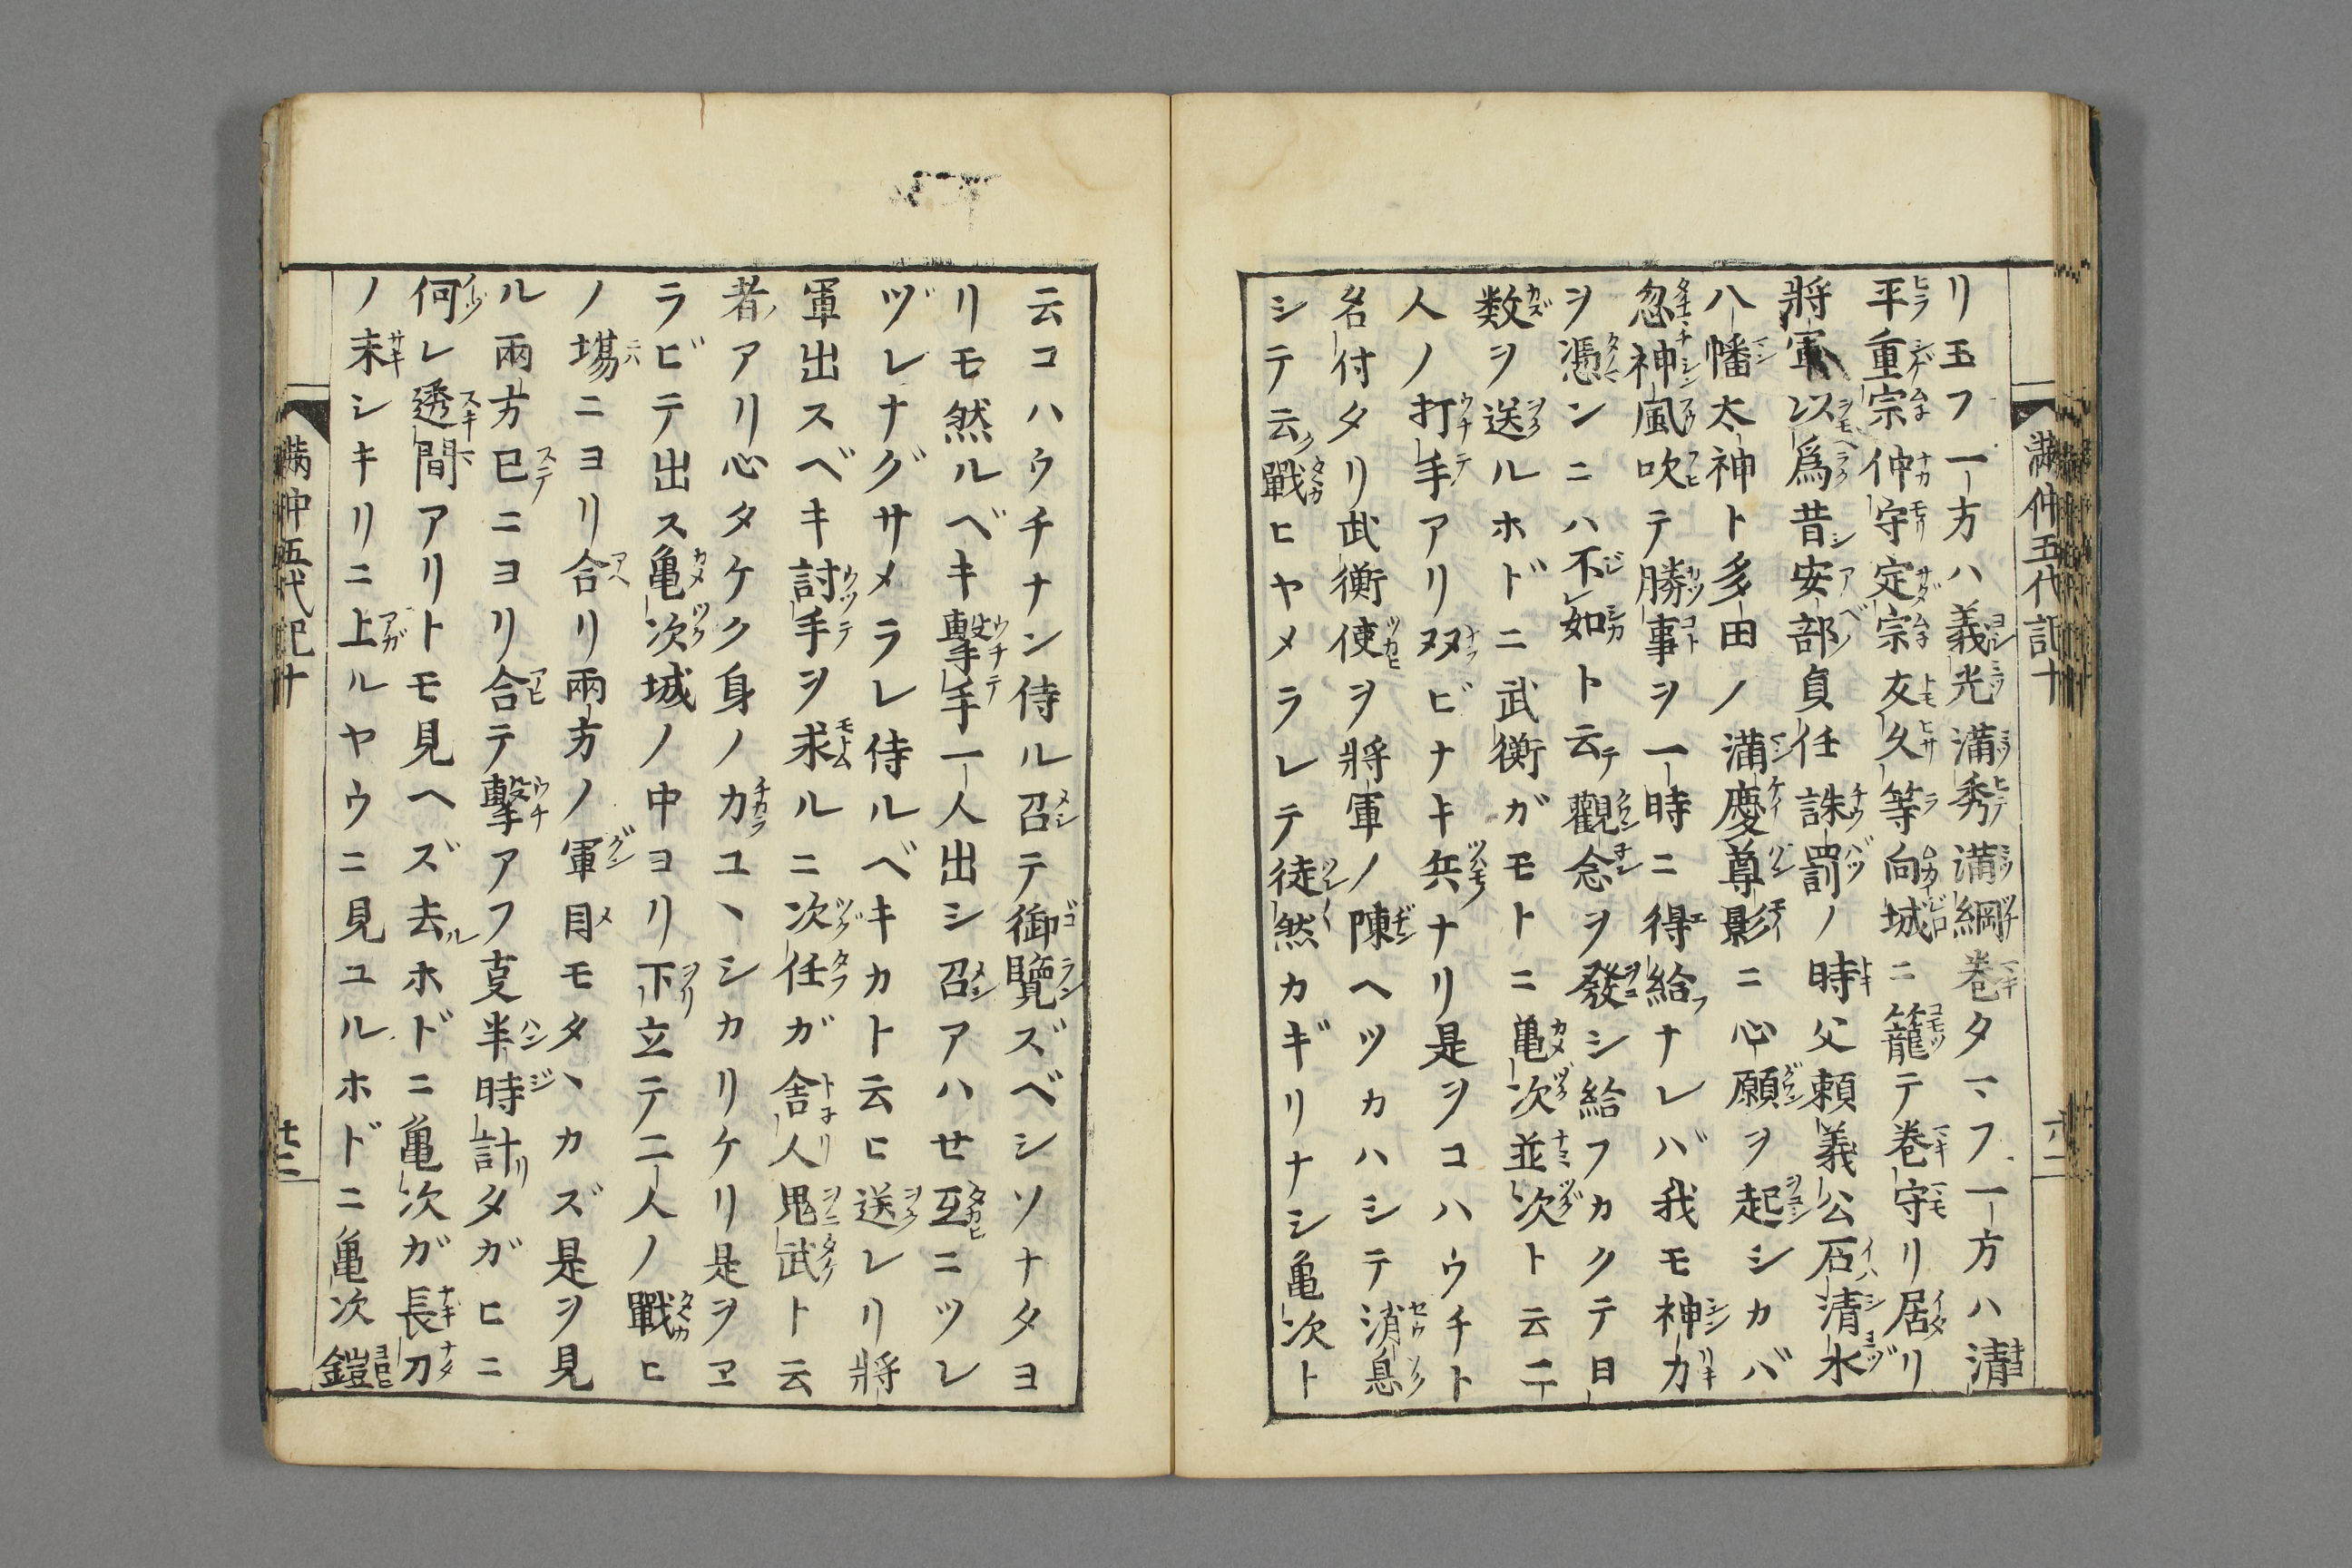 満仲五代記十
リ玉フ一方ハ義光満秀満綱巻タマフ一方ハ清
平重宗仲守定宗友久等向城ニ籠テ巻守リ居リ
將軍以爲昔安部貞任誅罰ノ時父頼義公石清水
八幡太神ト多田ノ満慶尊影ニ心願ヲ起シカバ
忽神風吹テ勝事ヲ一時ニ得給ナレバ我モ神力
ヲ憑ンニハ不如ト云テ觀念ヲ發シ給フカクテ日
数ヲ送ルホドニ武衡ガモトニ亀次並次ト云二
人ノ打手アリ双ビナキ兵ナリ是ヲコハウチト
名付タリ武衡使ヲ將軍ノ陳ヘツカハシテ消息
シテ云戰ヒヤメラレテ徒然カギリナシ亀次ト
云コハウチナン侍ル召テ御覽ズベシソナタヨ
リモ然ルベキ擊手一人出シ召アハせ互ニツレ
ヅレナグサメラレ侍ルベキカト云ヒ送レリ將
軍出スベキ討手ヲ求ルニ次任ガ舎人鬼武ト云
者アリ心タケク身ノ力ユヽシカリケリ是ヲヱ
ラビテ出ス亀次城ノ中ヨリ下立テ二人ノ戰ヒ
ノ塲ニヨリ合リ兩方ノ軍目モタヽカズ是ヲ見
ル兩方已ニヨリ合テ擊アフ㕝半時計タガヒニ
何レ透間アリトモ見ヘズ去ホドニ亀次ガ長刀
ノ末シキリニ上ルヤウニ見ユルホドニ亀次鎧
満仲五代記十